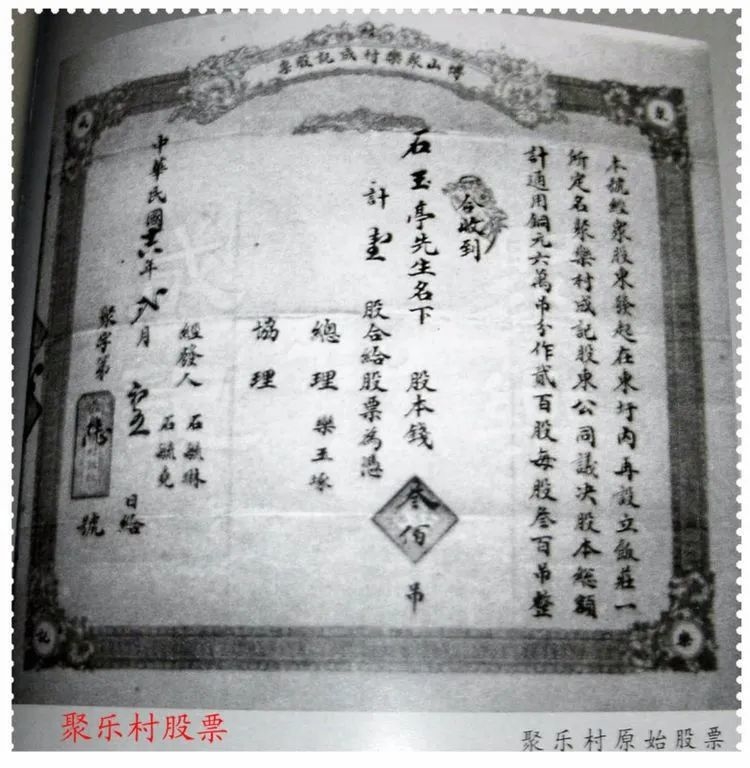 博山聚樂村成記股票
本號經衆股東發起在東圩内再設立飯莊一
所定名聚樂村成記股東公同議决股本總額
計通用銅元六萬吊分作貳百股每股叄百吊整
今收到
石玉亭先生名下 股本錢叄佰吊
計壹 股合給股票為憑
總理 欒玉琢
協理
經發人 石毓琳
石毓
中華民國十六年八月初五日給
聚字第 號
聚
樂
成
記
聚乐村股票
聚乐村原始股票